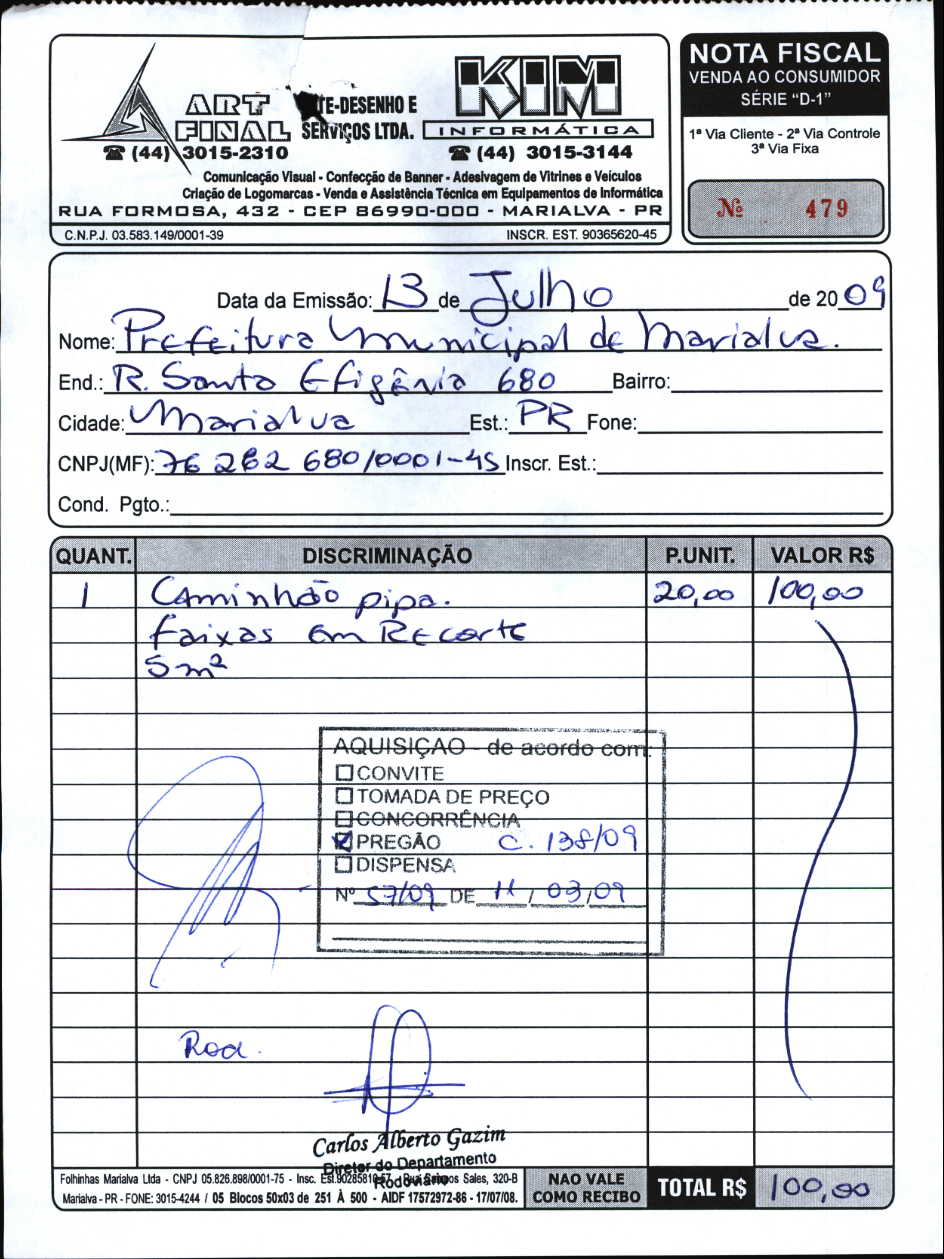 ART FINAL
-DESENHO E SERVIÇOS LTDA.
KIM INFORMÁTICA
(44) 3015-2310
(44) 3015-3144
Comunicação Visual - Confecção de Banner - Adesivagem de Vitrines e Veículos
Criação de Logomarcas - Venda e Assistência Técnica em Equipamentos de Informática
RUA FORMOSA, 432 - CEP 86990-000 - MARIALVA - PR
C.N.P.J. 03.583.149/0001-39 INSCR. EST. 90365620-45
NOTA FISCAL
VENDA AO CONSUMIDOR
SÉRIE "D-1"
1ª Via Cliente - 2ª Via Controle
3ª Via Fixa
Nº 479
Data da Emissão: 13 de Julho de 2009
Nome: Prefeitura Municipal de Marialva.
End.: R. Santa Efigênia 680 Bairro:
Cidade: Marialva Est.: PR Fone:
CNPJ(MF): 76 282 680/0001-45 Inscr. Est.:
Cond. Pgto.:
QUANT. DISCRIMINAÇÃO P.UNIT. VALOR R$
1 Caminhão pipa. 20,00 100,00
faixas em Recorte
5 m²
AQUISIÇÃO - de acordo com:
CONVITE
TOMADA DE PREÇO
CONCORRÊNCIA
PREGÃO C. 138/09
DISPENSA
Nº 57/09 DE 11 / 03 / 09
Rod.
Carlos Alberto Gazim
Diretor do Departamento
Rodoviário
Folhinhas Marialva Ltda - CNPJ 05.826.898/0001-75 - Insc. Sales, 320-B
Marialva - PR - FONE: 3015-4244 / 05 Blocos 50x03 de 251 À 500 - AIDF 17572972-86 - 17/07/08.
NAO VALE
COMO RECIBO
TOTAL R$ 100,00